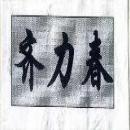 齐力春